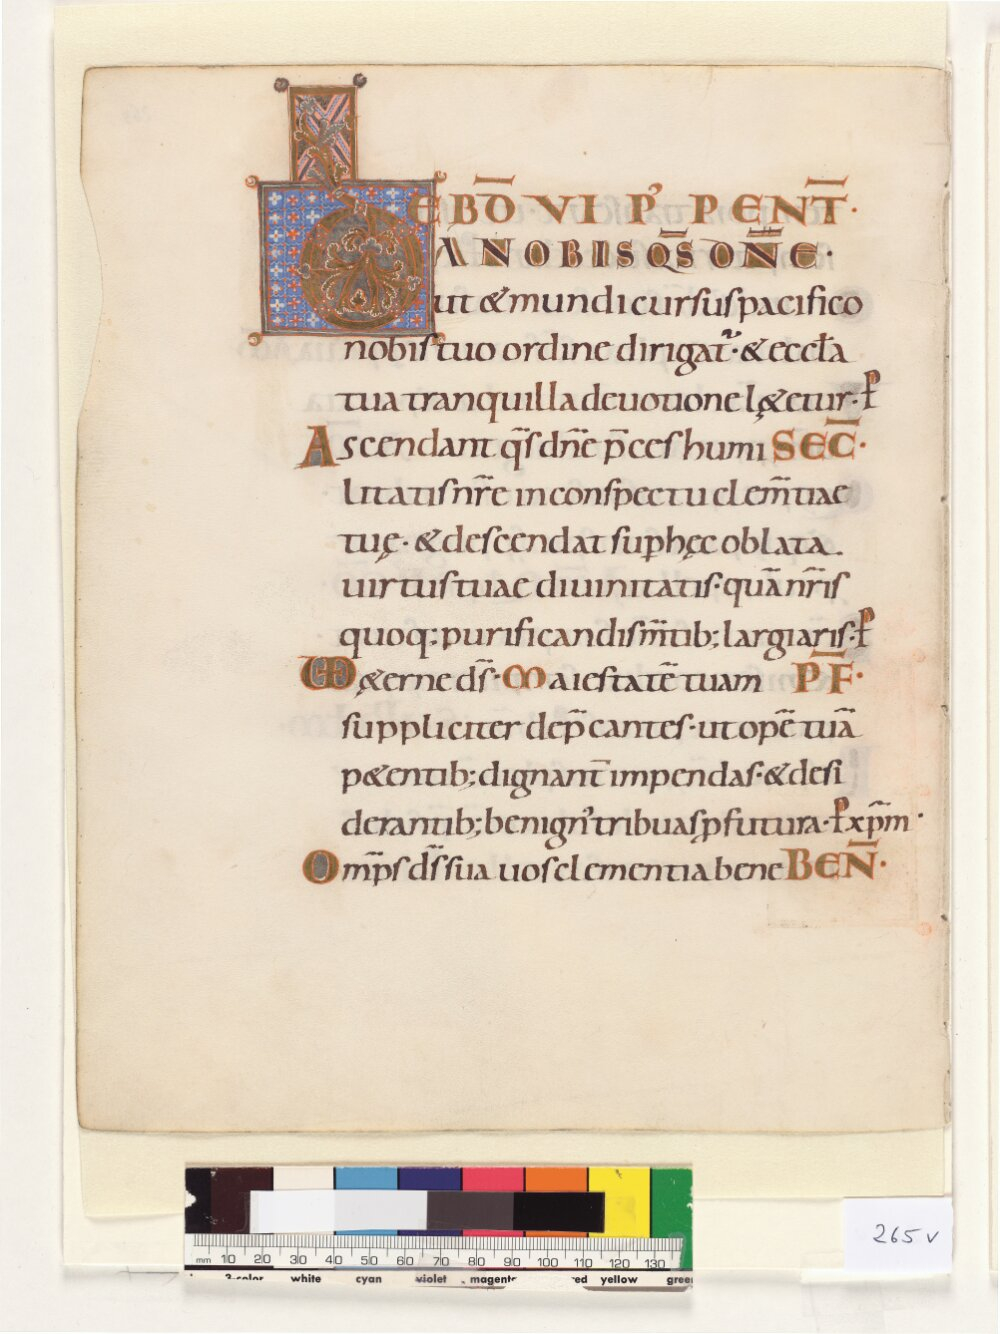 EBD̄ VI Pʾ PENT̄·
DA NOBIS QS̄ DN̄E·
ut & mundi cursus pacifico
nobis tuo ordine dirigat᷑·& eccl̄a
tua tranquilla deuotione lętetur·ꝑ
Ascendant qs̄ dn̄e p̄ces humi SEC̄·
litatis nr̄e in conspectu clem̄tiae
tuę·& descendat suꝑ hęc oblata.
uirtus tuae diuinitatis·quā nr̄is
quoq: purificandis m̄tib; largiaris·ꝑ
Męerne ds̄·Maiestatē tuam P̄F·
suppliciter dep̄cantes·ut opē tuā
p&entib; dignant̄ impendas·& desi
derantib; benignʾ tribuas ꝓfutura·ꝑ xp̄m·
Omp̄s ds̄ sua uos clementia bene BEN̄·
265v
mm 10 20 30 40 50 60 70 80 90 100 110 120 130
3-color white cyan violet magenta red yellow green